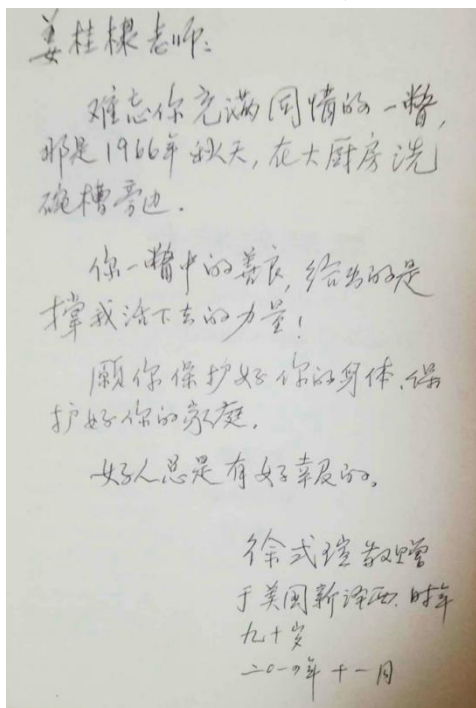 姜桂榛老师:
难忘你充满同情的一瞥,
那是1966年秋天,在大厨房洗
碗槽旁边.
你一瞥中的善良,给出的是
撑我活下去的力量!
愿你保护好你的身体、保
护好你的家庭.
好人总是有好报的。
徐式瑄敬赠
于美国新泽西.时年
九十岁
二〇一四年十一月